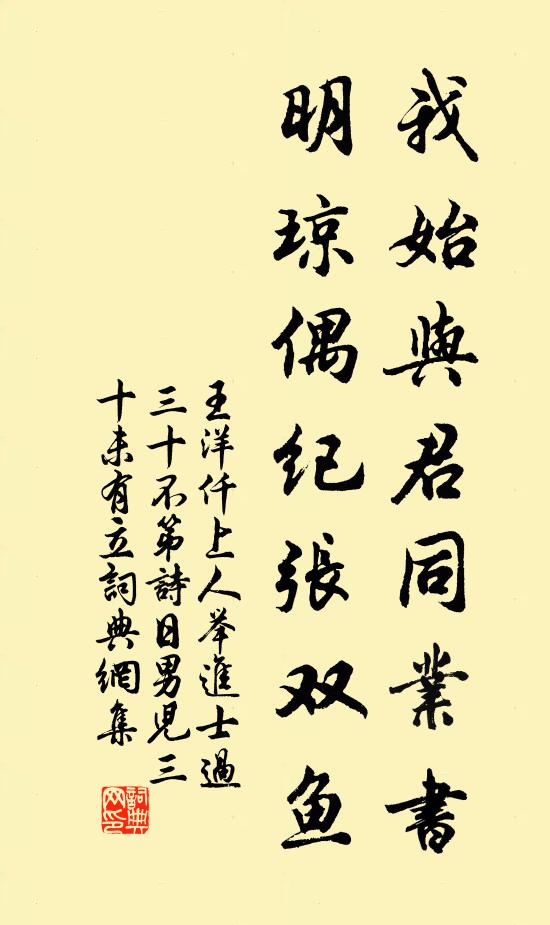 我始與君同業書
明琼偶纪張双鱼
王洋仟上人举進士過
三十不第詩曰男児三
十未有立詞典網集
詞典
网印